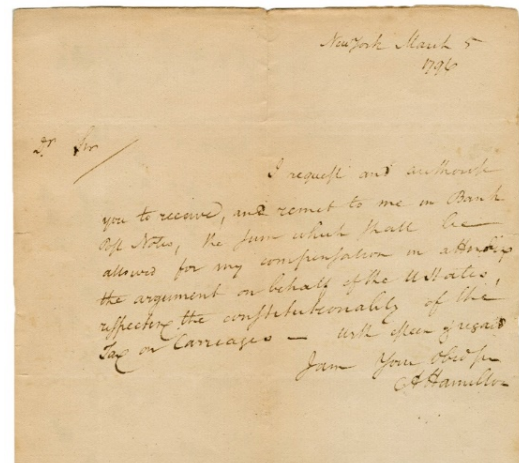 New York March 5
1796
Dr Sir
I request and authorise
you to receive, and remit to me in Bank
Post Notes, the sum which shall be
allowed for my compensation in attending
the argument on behalf of the U States,
respecting the constitutionality of the
Tax on Carriages — with esteem & regard
I am Your Obed ser
A Hamilton